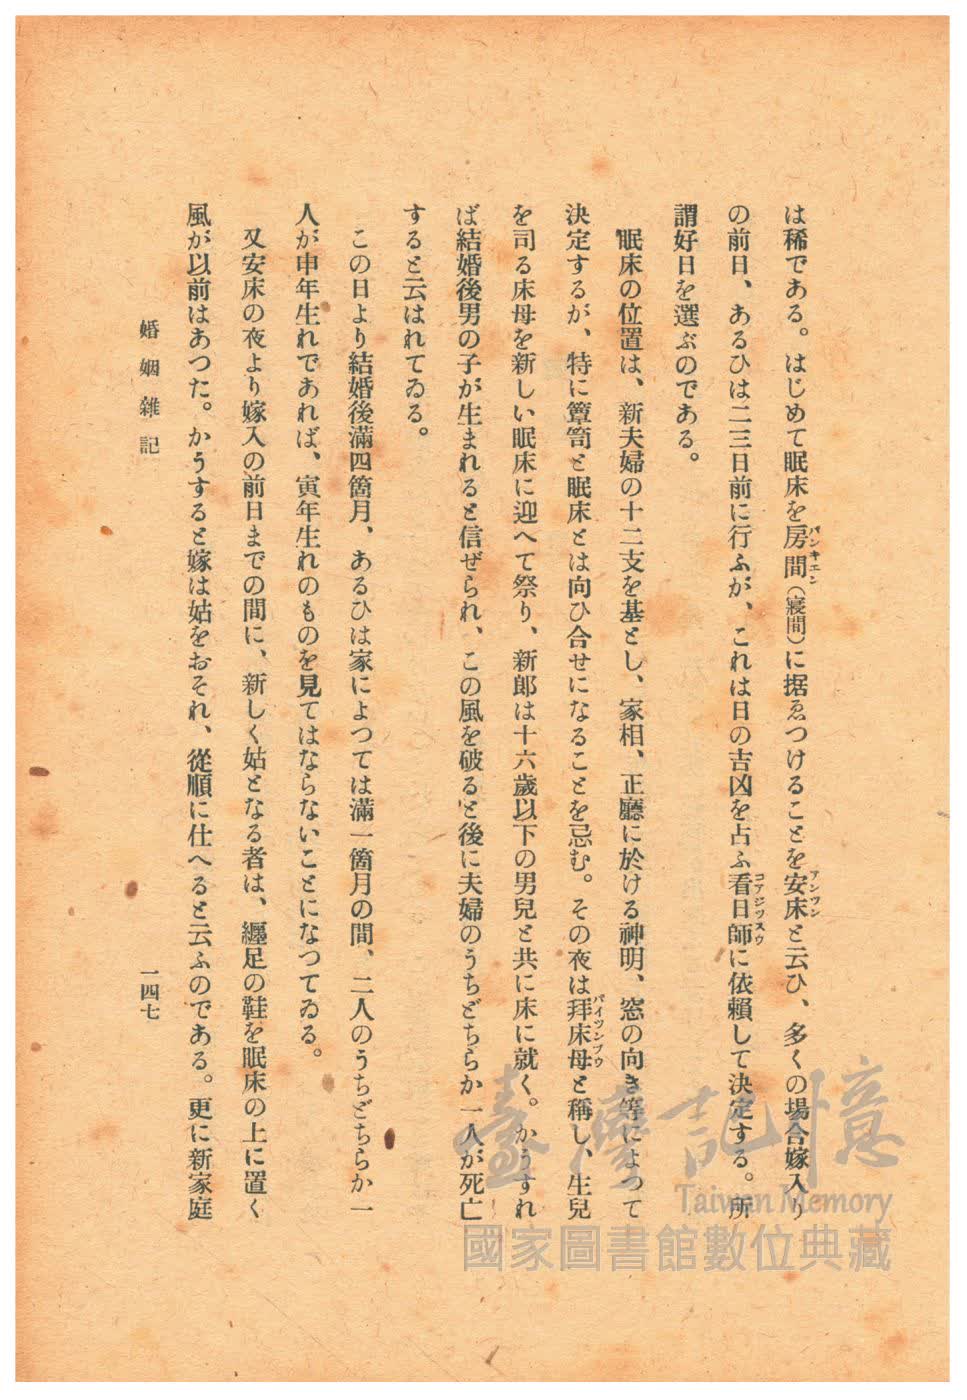 は稀である。はじめて眠床を房間（寢間）に据ゑつけることを安床と云ひ、多くの場合嫁入り
バンキエン
アンツン
の前日、あるひは二三日前に行ふが、これは日の吉凶を占ふ看日師に依賴して決定する。所
コアジツスウ
謂好日を選ぶのである。
眠床の位置は、新夫婦の十二支を基とし、家相、正廳に於ける神明、窓の向き等によつて
決定するが、特に簞笥と眠床とは向ひ合せになることを忌む。その夜は拜床母と稱し、生兒
パイツンブウ
を司る床母を新しい眠床に迎へて祭り、新郎は十六歲以下の男兒と共に床に就く。かうすれ
ば結婚後男の子が生まれると信ぜられ、この風を破ると後に夫婦のうちどちらか一人が死亡
すると云はれてゐる。
この日より結婚後滿四箇月、あるひは家によつては滿一箇月の間、二人のうちどちらか一
人が申年生れであれば、寅年生れのものを見てはならないことになつてゐる。
又安床の夜より嫁入の前日までの間に、新しく姑となる者は、纏足の鞋を眠床の上に置く
風が以前はあつた。かうすると嫁は姑をおそれ、從順に仕へると云ふのである。更に新家庭
婚姻雜記
一四七
臺灣記憶
Taiwan Memory
國家圖書館數位典藏